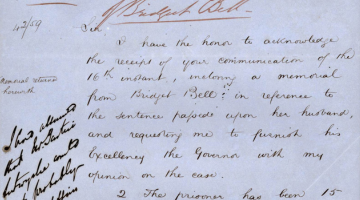 Bridget Bell.
42/59
Sir
I have the honor to acknowledge
the receipt of your communication of the
16th instant, inclosing a memorial
from Bridget Bell in reference to
the sentence passed upon her husband,
and requesting me to furnish his
Excellency the Governor with my
opinion on the case.
2 The prisoner has been 15
Memorial returned
herewith
that
probably